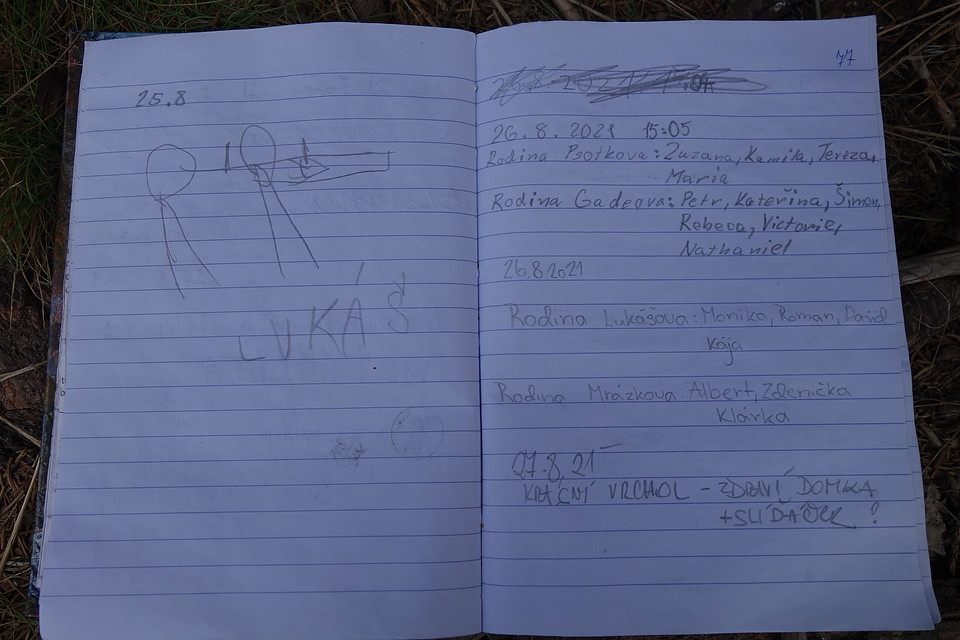 25.8
LUKÁŠ
77
26.8.2021 15:05
Rodina Psotkova: Zuzana, Kamila, Tereza,
Maria
Rodina Gadeova: Petr, Kateřina, Šimon,
Rebeca, Victorie,
Nathaniel
26.8.2021
Rodina Lukášova: Monika, Roman, David
Kája
Rodina Mrázkova: Albert, Zdenička
Klárka
27.8.21
VRCHOL - ZDRAVÍ DOMKA